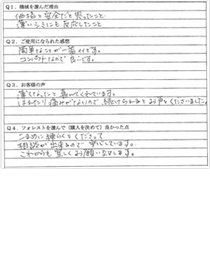 Q1. 機械を選んだ理由
価格と安全だと思ったこと
薄いシミにも反応したこと
Q2. ご使用になられた感想
簡単なことが一番イイです。
コンパクトなので良いです。
Q3. お客様の声
薄くなったと喜んでくれています。
はれたり痛みがないので続けられるとお声をくださいました。
Q4. フォレストを選んで(購入を決めて)良かった点
こまめに連らくをくださって
相談が出来るので安心しています。
これからも宜しくお願いいたします。